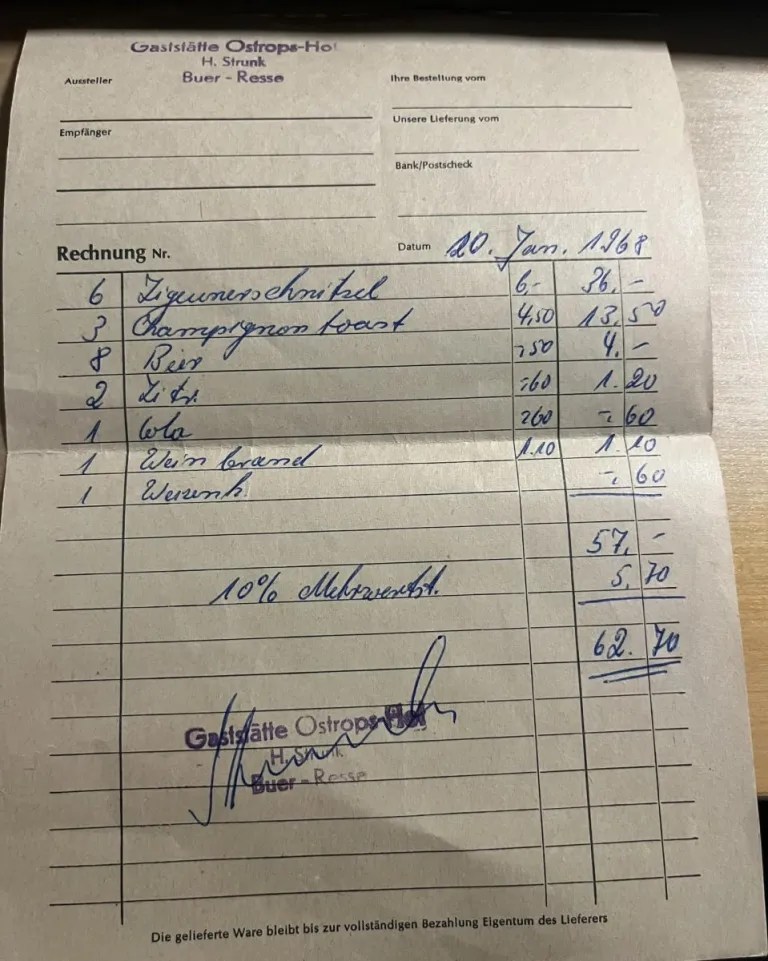 Gaststätte Ostrops-Hof
H. Strunk
Buer - Resse
Aussteller
Ihre Bestellung vom
Unsere Lieferung vom
Empfänger
Bank/Postscheck
Rechnung Nr.
Datum 20. Jan. 1968
6 Zigeunerschnitzel 6,- 36,-
3 Champignontoast 4,50 13,50
8 Bier -,50 4,-
2 Zitr. -,60 1.20
1 Cola -,60 -,60
1 Weinbrand 1.10 1.10
1 Weizenk. -,60
57,-
10% Mehrwertst. 5,70
62.70
Gaststätte Ostrops-Hof
H. Strunk
Buer - Resse
Die gelieferte Ware bleibt bis zur vollständigen Bezahlung Eigentum des Lieferers